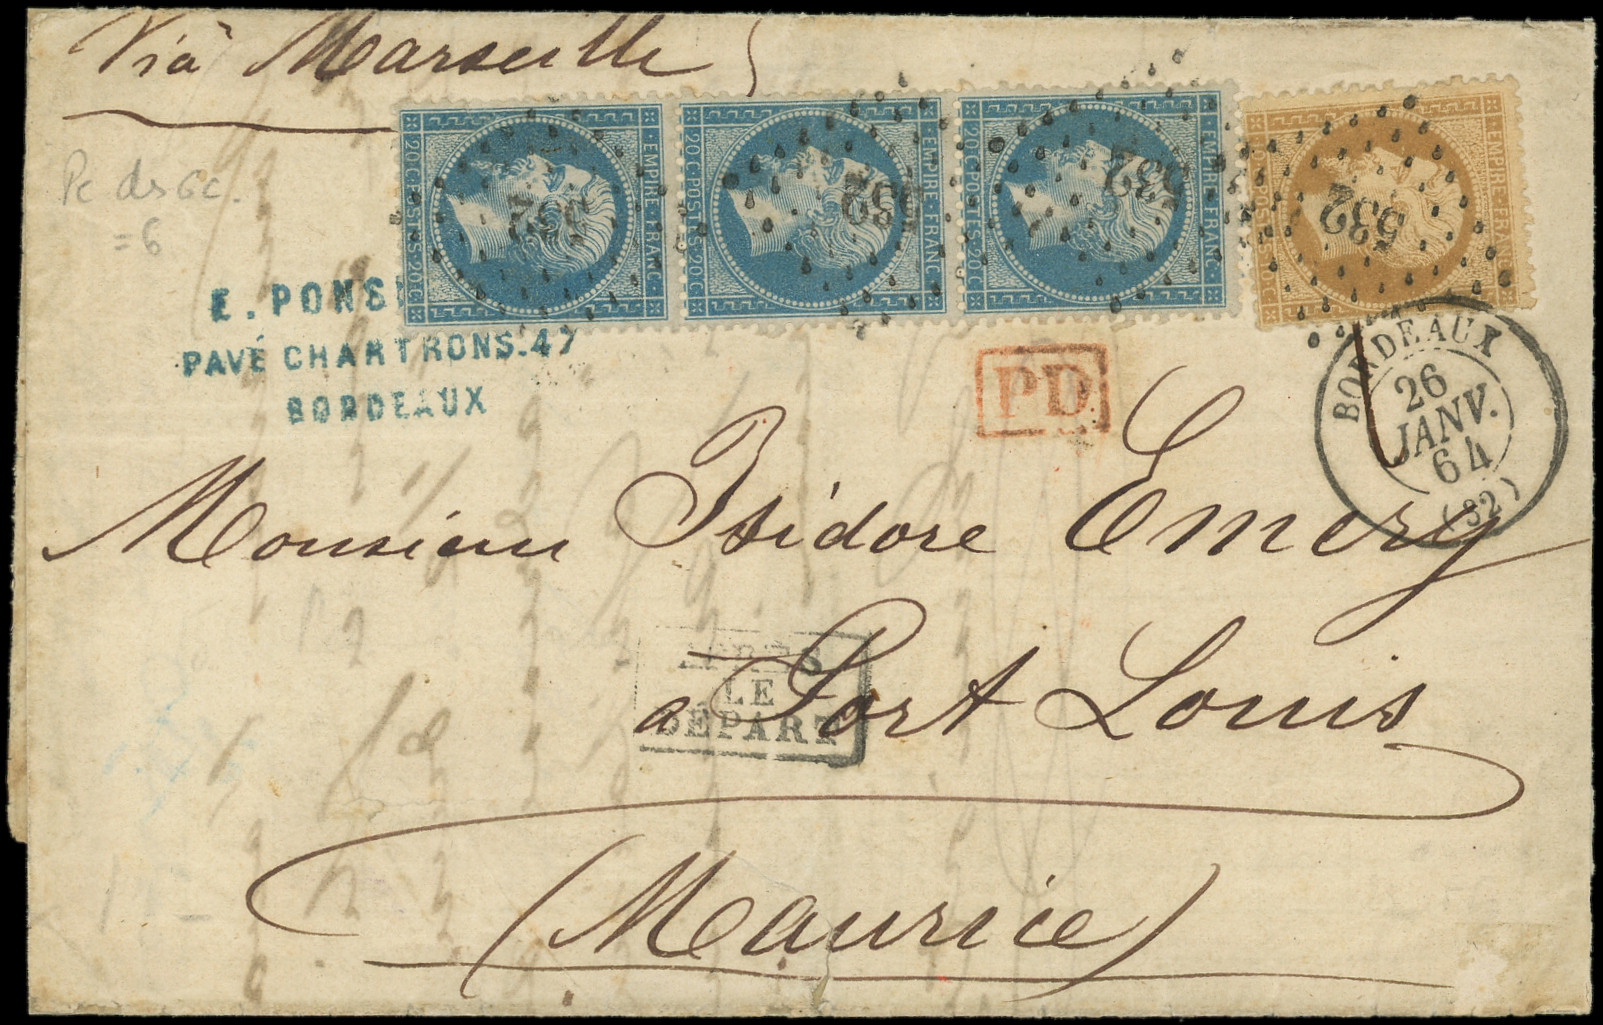 Viâ Marseille
Pc ds GC.
=6
EMPIRE·FRANC
20·C·POSTES·20·C
532
EMPIRE·FRANC
20·C·POSTES·20·C
532
EMPIRE·FRANC
20·C·POSTES·20·C
532
EMPIRE·FRANC
532
E. PONS
PAVÉ CHARTRONS.47
BORDEAUX
PD
BORDEAUX
26
JANV.
64
(32)
Monsieur Isidore Emery
APRÈS
LE
DÉPART
a Port Louis
(Maurice)